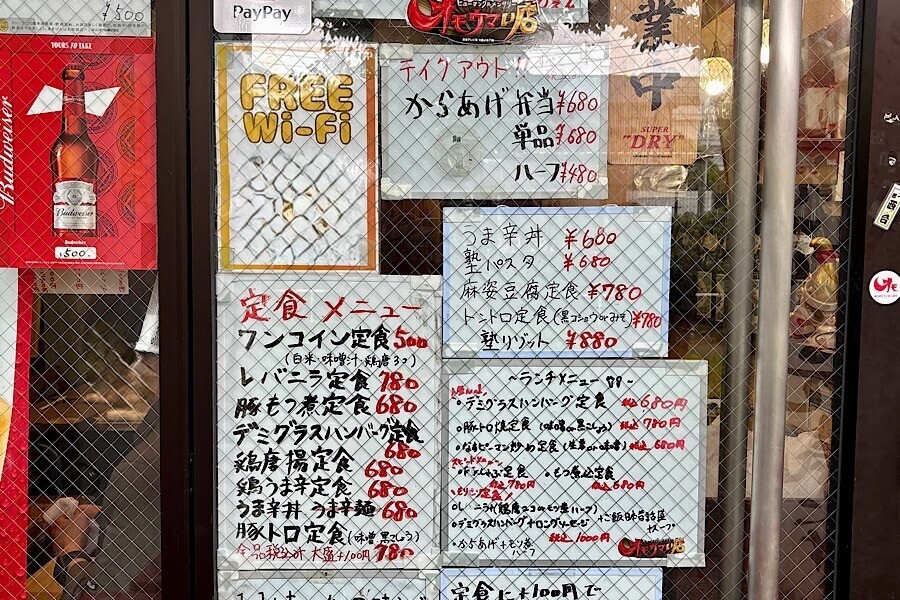 ¥500
PayPay
オモウマい店
YOURS TO TAKE
Budweiser
Budweiser
Budweiser
500
FREE
Wi-Fi
テイクアウト
からあげ弁当 ¥680
単品 ¥680
ハーフ ¥480
業中
SUPER
"DRY"
うま辛丼 ¥680
塾パスタ ¥680
麻婆豆腐定食 ¥780
トントロ定食(黒コショウorみそ) ¥780
塾リゾット ¥880
定食 メニュー
ワンコイン定食 500
(白米・味噌汁・鶏唐3つ)
レバニラ定食 780
豚もつ煮定食 680
デミグラスハンバーグ定食
680
鶏唐揚定食 680
鶏うま辛定食 680
うま辛丼 うま辛麺 680
豚トロ定食(味噌 黒こしょう)
全品税込み 大盛+100円 780
～ランチメニュー～
・デミグラスハンバーグ定食 税込680円
・豚トロ焼定食 (味噌or黒こしょう) 税込780円
定食 税込680円
定食 ・もつ煮込定食
税込780円 税込680円
・デミグラスハンバーグ+ロングソーセージ
・からあげ+モツ煮 税込1000円
ハーフ
オモウマい店
定食に+100円で
西台